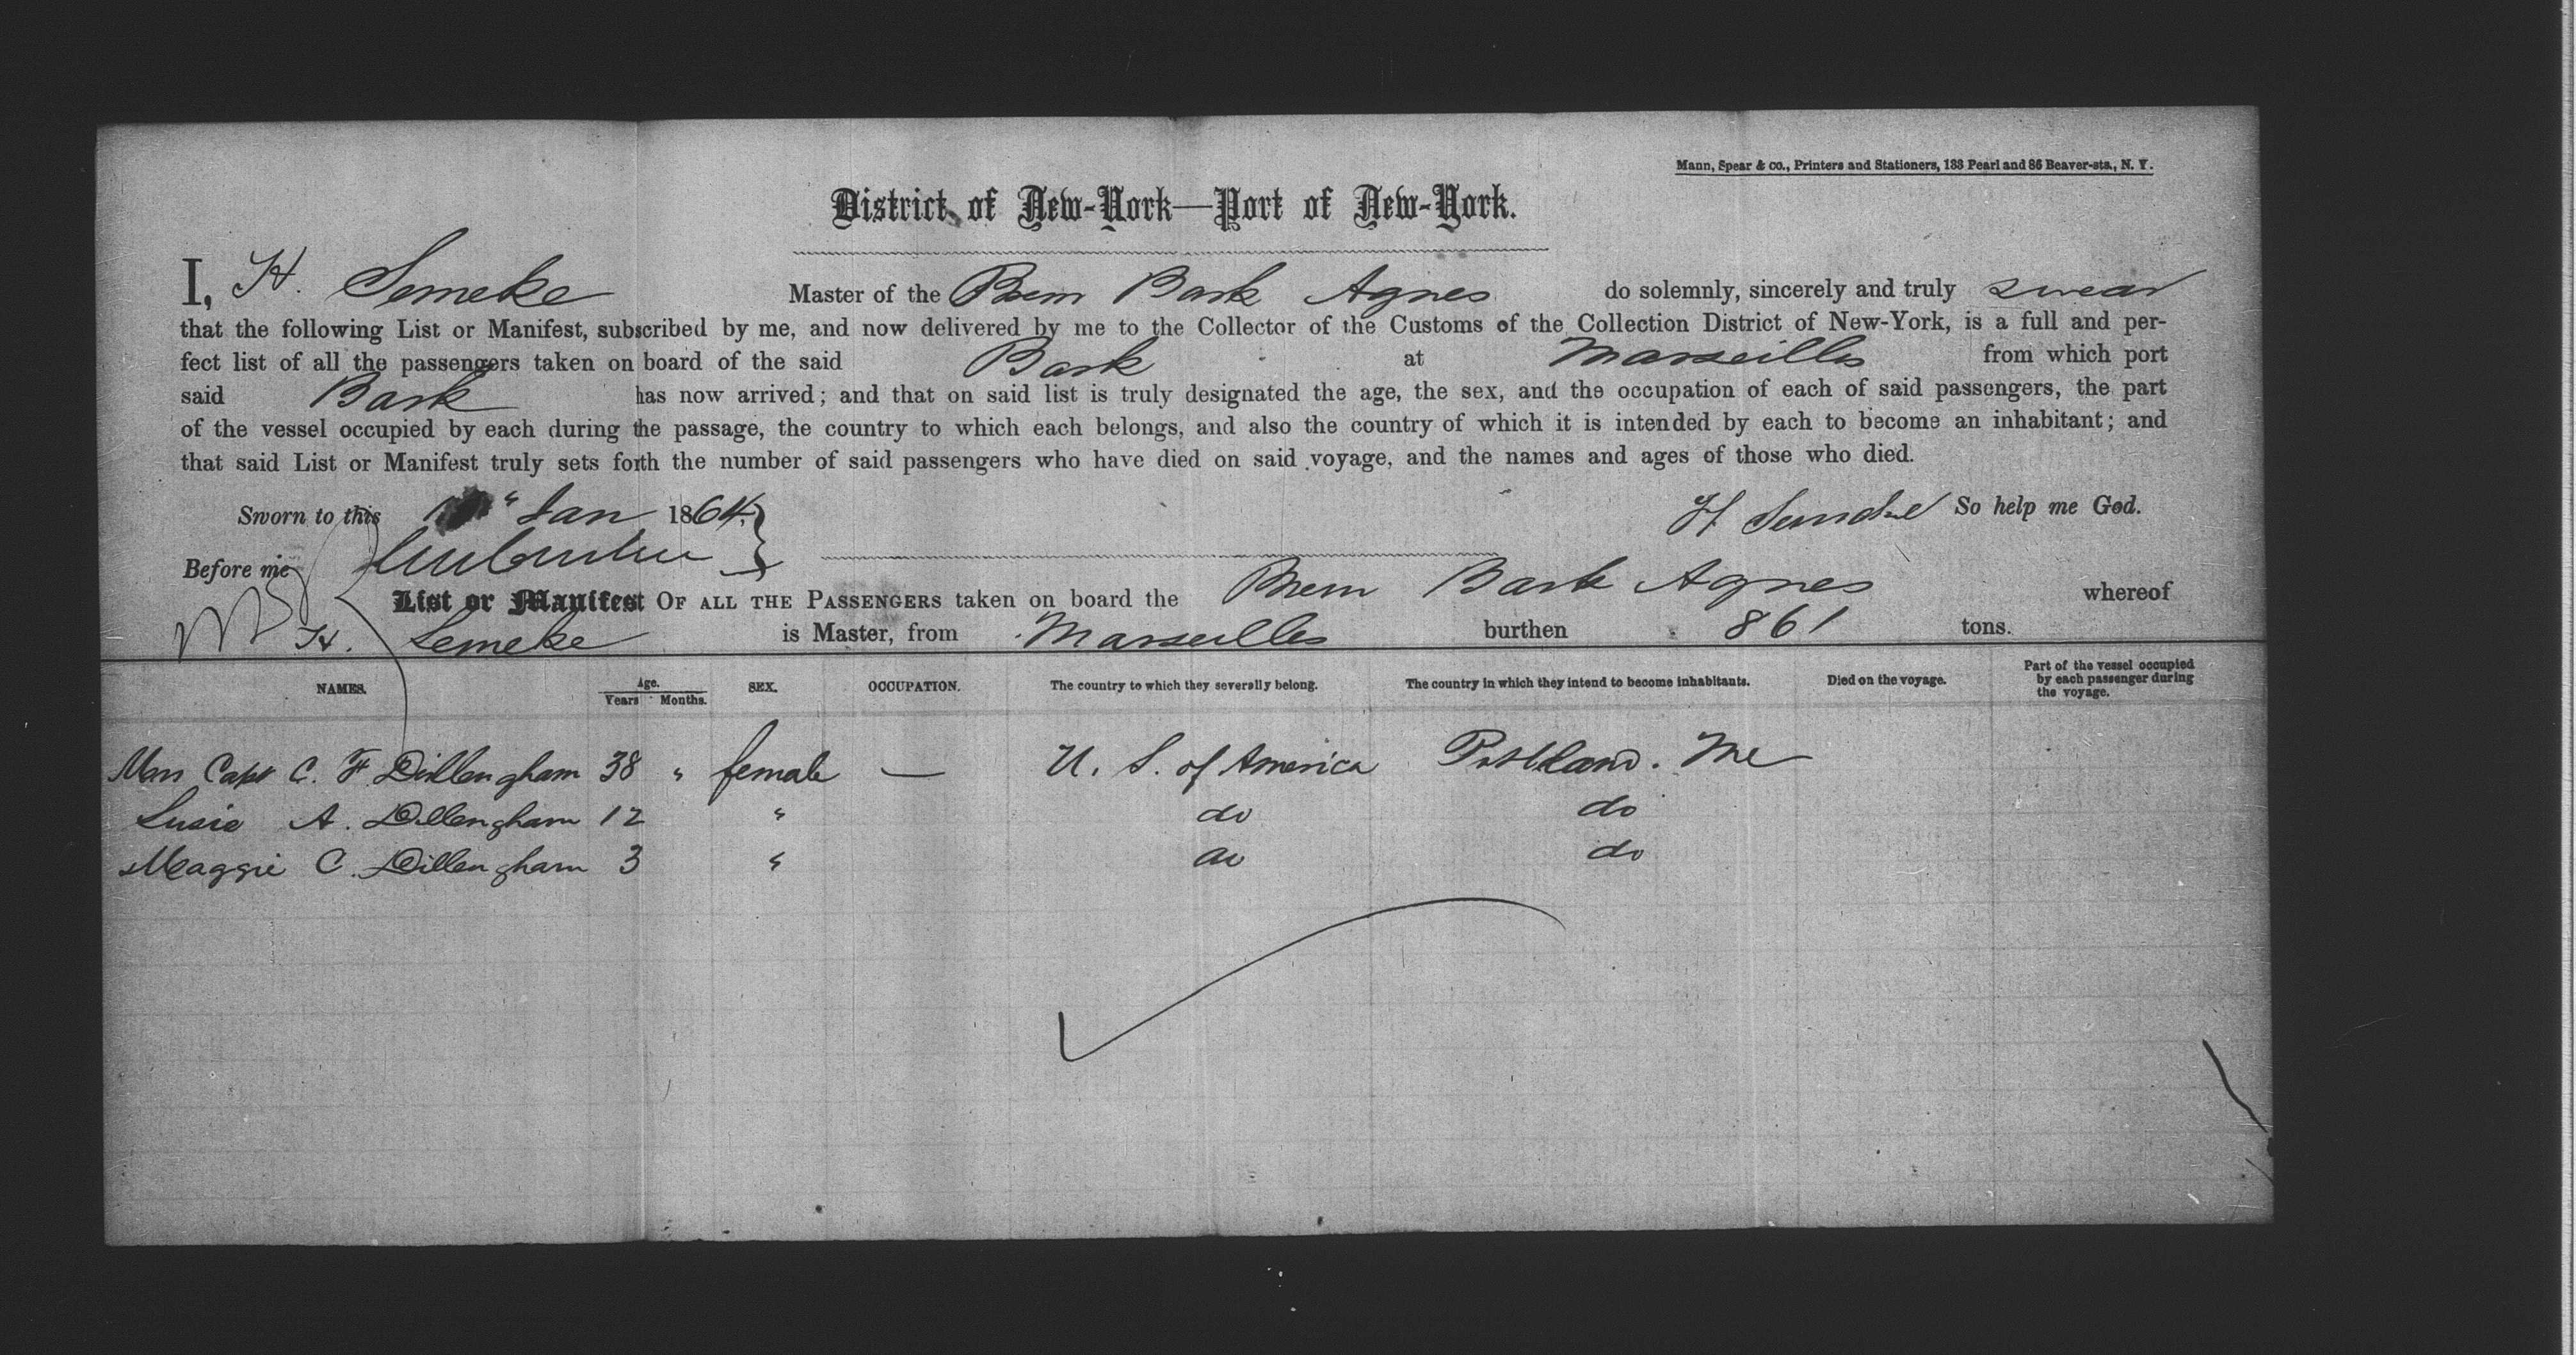 Mann, Spear & co., Printers and Stationers, 133 Pearl and 86 Beaver-sts., N. Y.
District of New-York—Port of New-York.
I, H. Semcke Master of the Brem Bark Agnes do solemnly, sincerely and truly swear
that the following List or Manifest, subscribed by me, and now delivered by me to the Collector of the Customs of the Collection District of New-York, is a full and per-
fect list of all the passengers taken on board of the said Bark at Marseilles from which port
said Bark has now arrived; and that on said list is truly designated the age, the sex, and the occupation of each of said passengers, the part
of the vessel occupied by each during the passage, the country to which each belongs, and also the country of which it is intended by each to become an inhabitant; and
that said List or Manifest truly sets forth the number of said passengers who have died on said voyage, and the names and ages of those who died.
Sworn to this " Jan 1864, H So help me God.
Before me
List or Manifest OF ALL THE PASSENGERS taken on board the Brem Bark Agnes whereof
H. Semcke is Master, from Marseilles burthen 861 tons.
NAMES. Age. Years Months. SEX. OCCUPATION. The country to which they severally belong. The country in which they intend to become inhabitants. Died on the voyage. Part of the vessel occupied by each passenger during the voyage.
Mrs Capt C. F. Dillengham 38 " female — U. S. of America Portland. Me
Susie A. Dillengham 12 " do do
Maggie C. Dillengham 3 " do do